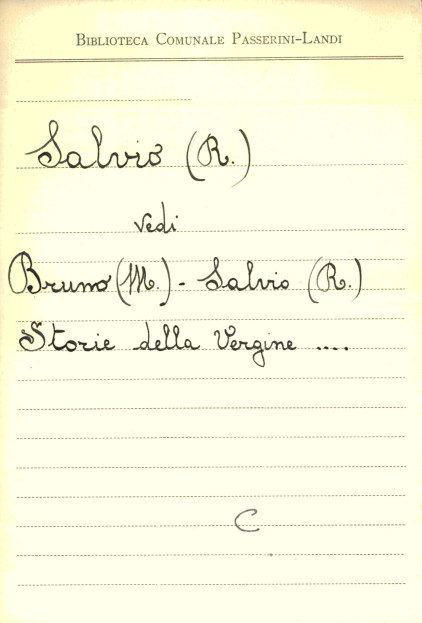 BIBLIOTECA COMUNALE PASSERINI-LANDI
Salvio (R.)
vedi
Bruno (M.) - Salvio (R.)
Storie della Vergine ....
C